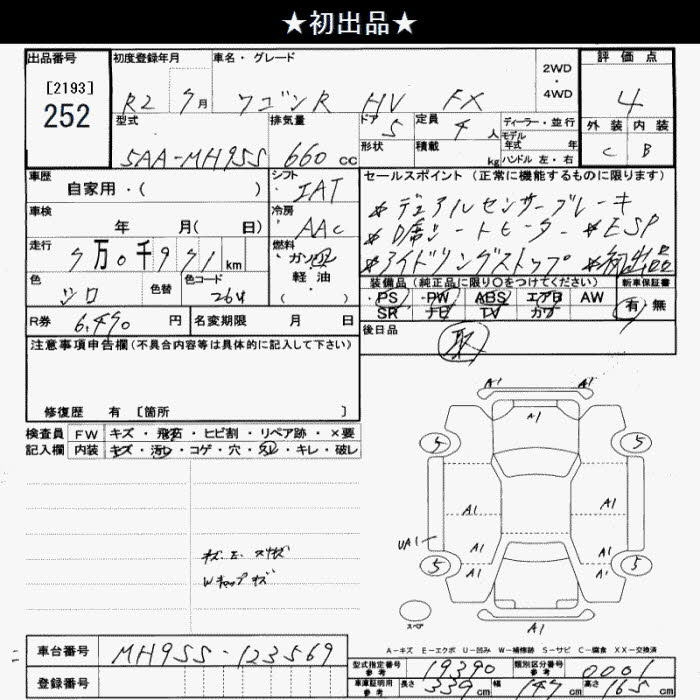 ★初出品★
出品番号 初度登録年月 車名・グレード 2WD・4WD 評価点
[2193] 252 R2 7月 ワゴンR HV FX 4
型式 排気量 ドア 5 定員 4人 ディーラー・並行 外装 内装
5AA-MH95S 660cc 形状 積載 kg モデル年式 年 ハンドル 左・右 C B
車歴 自家用・( ) シフト IAT セールスポイント (正常に機能するものに限ります)
車検 年 月( 日) 冷房 AAC *デュアルセンサーブレーキ
*D席シートヒーター *ESP
走行 7万0千971km 燃料 ガソリン・軽・油( ) *アイドリングストップ *初出品
色 シロ 色替 色コード 26U 装備品 (純正品に限り○をつけてください) 新車保証書
PS PW ABS エアB AW 有・無
SR ナビ TV カワ
R券 6,490円 名変期限 月 日 後日品 取
注意事項申告欄(不具合内容等は具体的に記入して下さい)
修復歴 有 [箇所 ]
検査員 FW キズ・飛石・ヒビ割・リペア跡・×要
記入欄 内装 キズ・汚れ・コゲ・穴・スレ・キレ・破レ
A1 A1
A1
5 5
A1 A1
UA1
A1 A1
5 A1 5
Wキャップキズ
スペア
A1
A-キズ E-エクボ U-凹み W-補修跡 S-サビ C-腐食 XX-交換済
車台番号 MH95S-123569
登録番号
型式指定番号 参考 19390 類別区分番号 参考 0001
車庫証明用 参考 長さ 339cm 幅 147cm 高さ 165cm